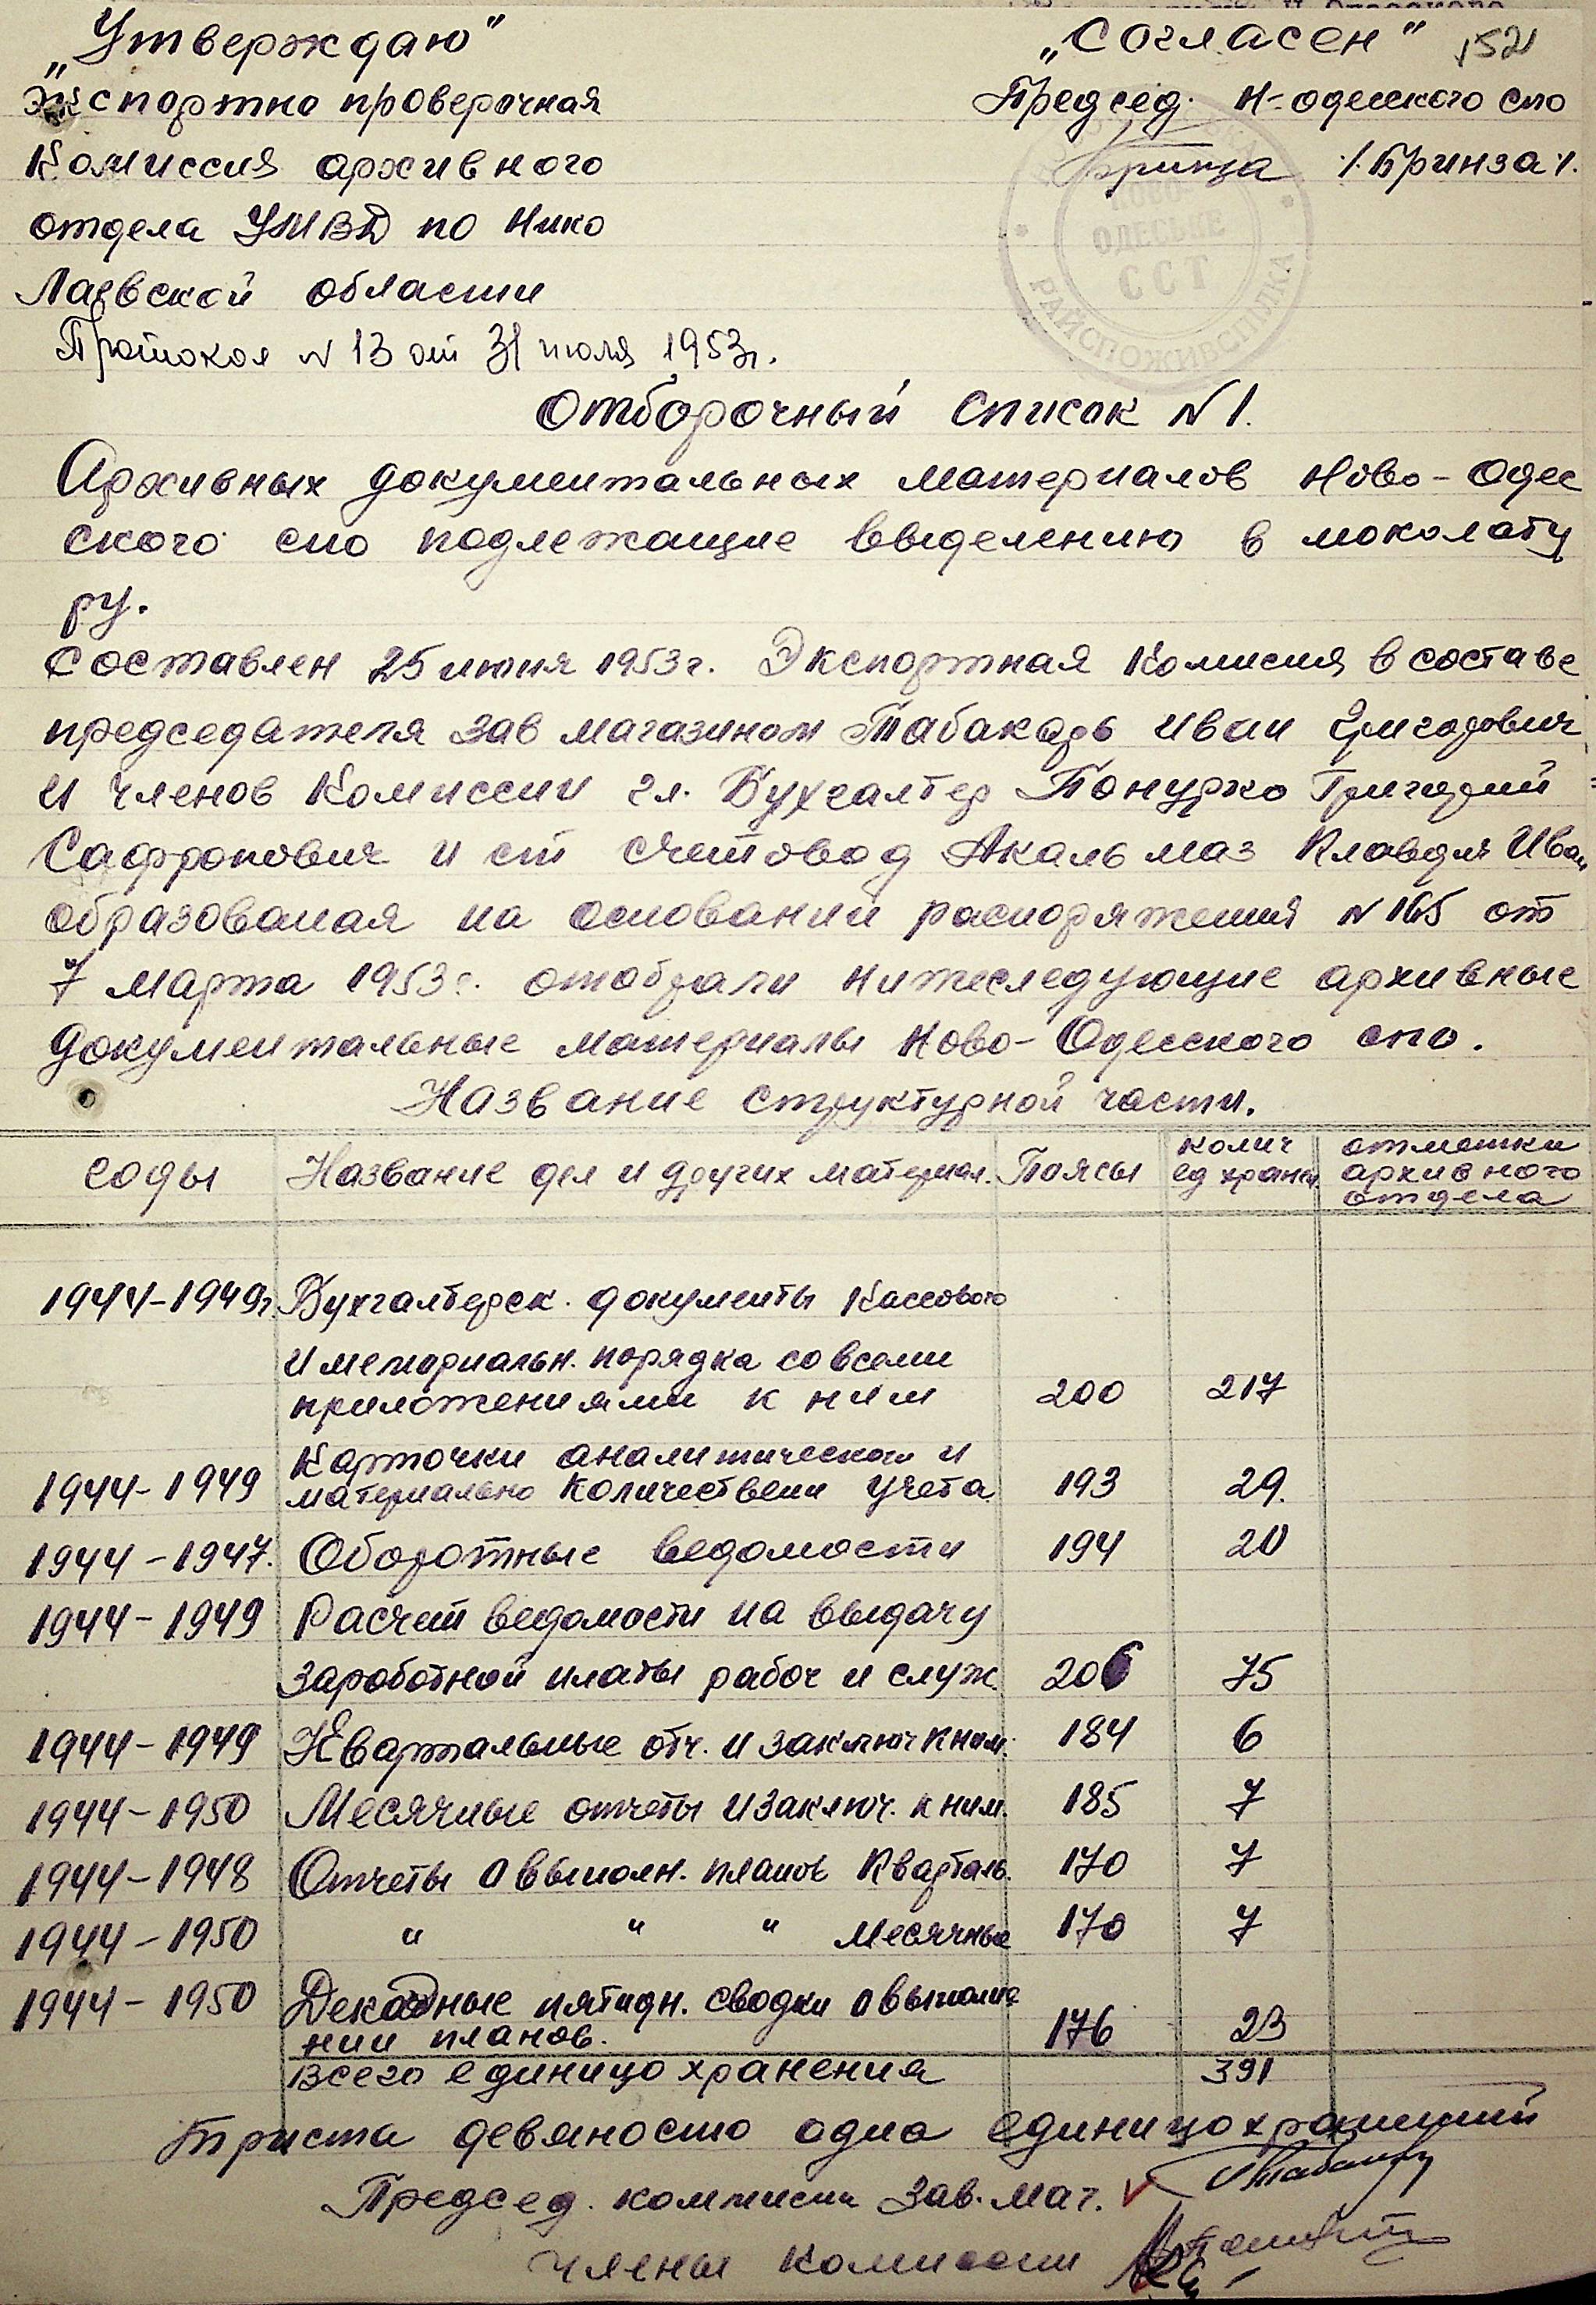 „Утверждаю"
Экспортно проверочная
Комиссия архивного
отдела УМВД по Нико
лаевской области
Протокол N 13 от 31 июля 1953г.
„Согласен" 152
Председ. Н-одесского спо
Бринза /.Бринза/.
ОДЕСЬКЕ
ССТ
РАЙСПОЖИВСПІЛКА
Отборочный список N 1.
Архивных документальных материалов Ново-Одес
ского спо подлежащие выделению в моколату
ру.
Составлен 25 июня 1953г. Экспортная Комисия в составе
председателя зав магазином Табакарь Иван Григорович
и членов Комиссии гл. Бухгалтер Понурко Григорий
Сафронович и ст счетовод Акальмаз Клавдия Иван
образованая на основании распоряжения N 165 от
7 марта 1953г. отобрали нижеследующие архивные
документальные материалы Ново-Одесского спо.
Название структурной части.
годы Название дел и других материал. Поясы колич ед хранен отметки архивного отдела
1944-1949г. Бухгалтерск. документы Кассового
и мемориальн. порядка со всеми
приложениями к ним 200 217
Карточки аналитического и
1944-1949 материально количествени учета 193 29.
1944-1947. Оборотные ведомости 194 20
1944-1949 Расчет ведомости на выдачу
заработной платы рабоч и служ. 206 75
1944-1949 Квартальные отч. и заключ к ним. 184 6
1944-1950 Месячные отчеты и заключ. к ним. 185 7
1944-1948 Отчеты о выполн. планов Кварталь. 170 7
1944-1950 " " " месячные 170 7
1944-1950 Декадные пятидн. сводки о выполне
нии планов. 176 23
Всего единицо хранения 391
Триста девяносто одна единицо хранений
Председ. комписии Зав. маг.
Члены комиссии